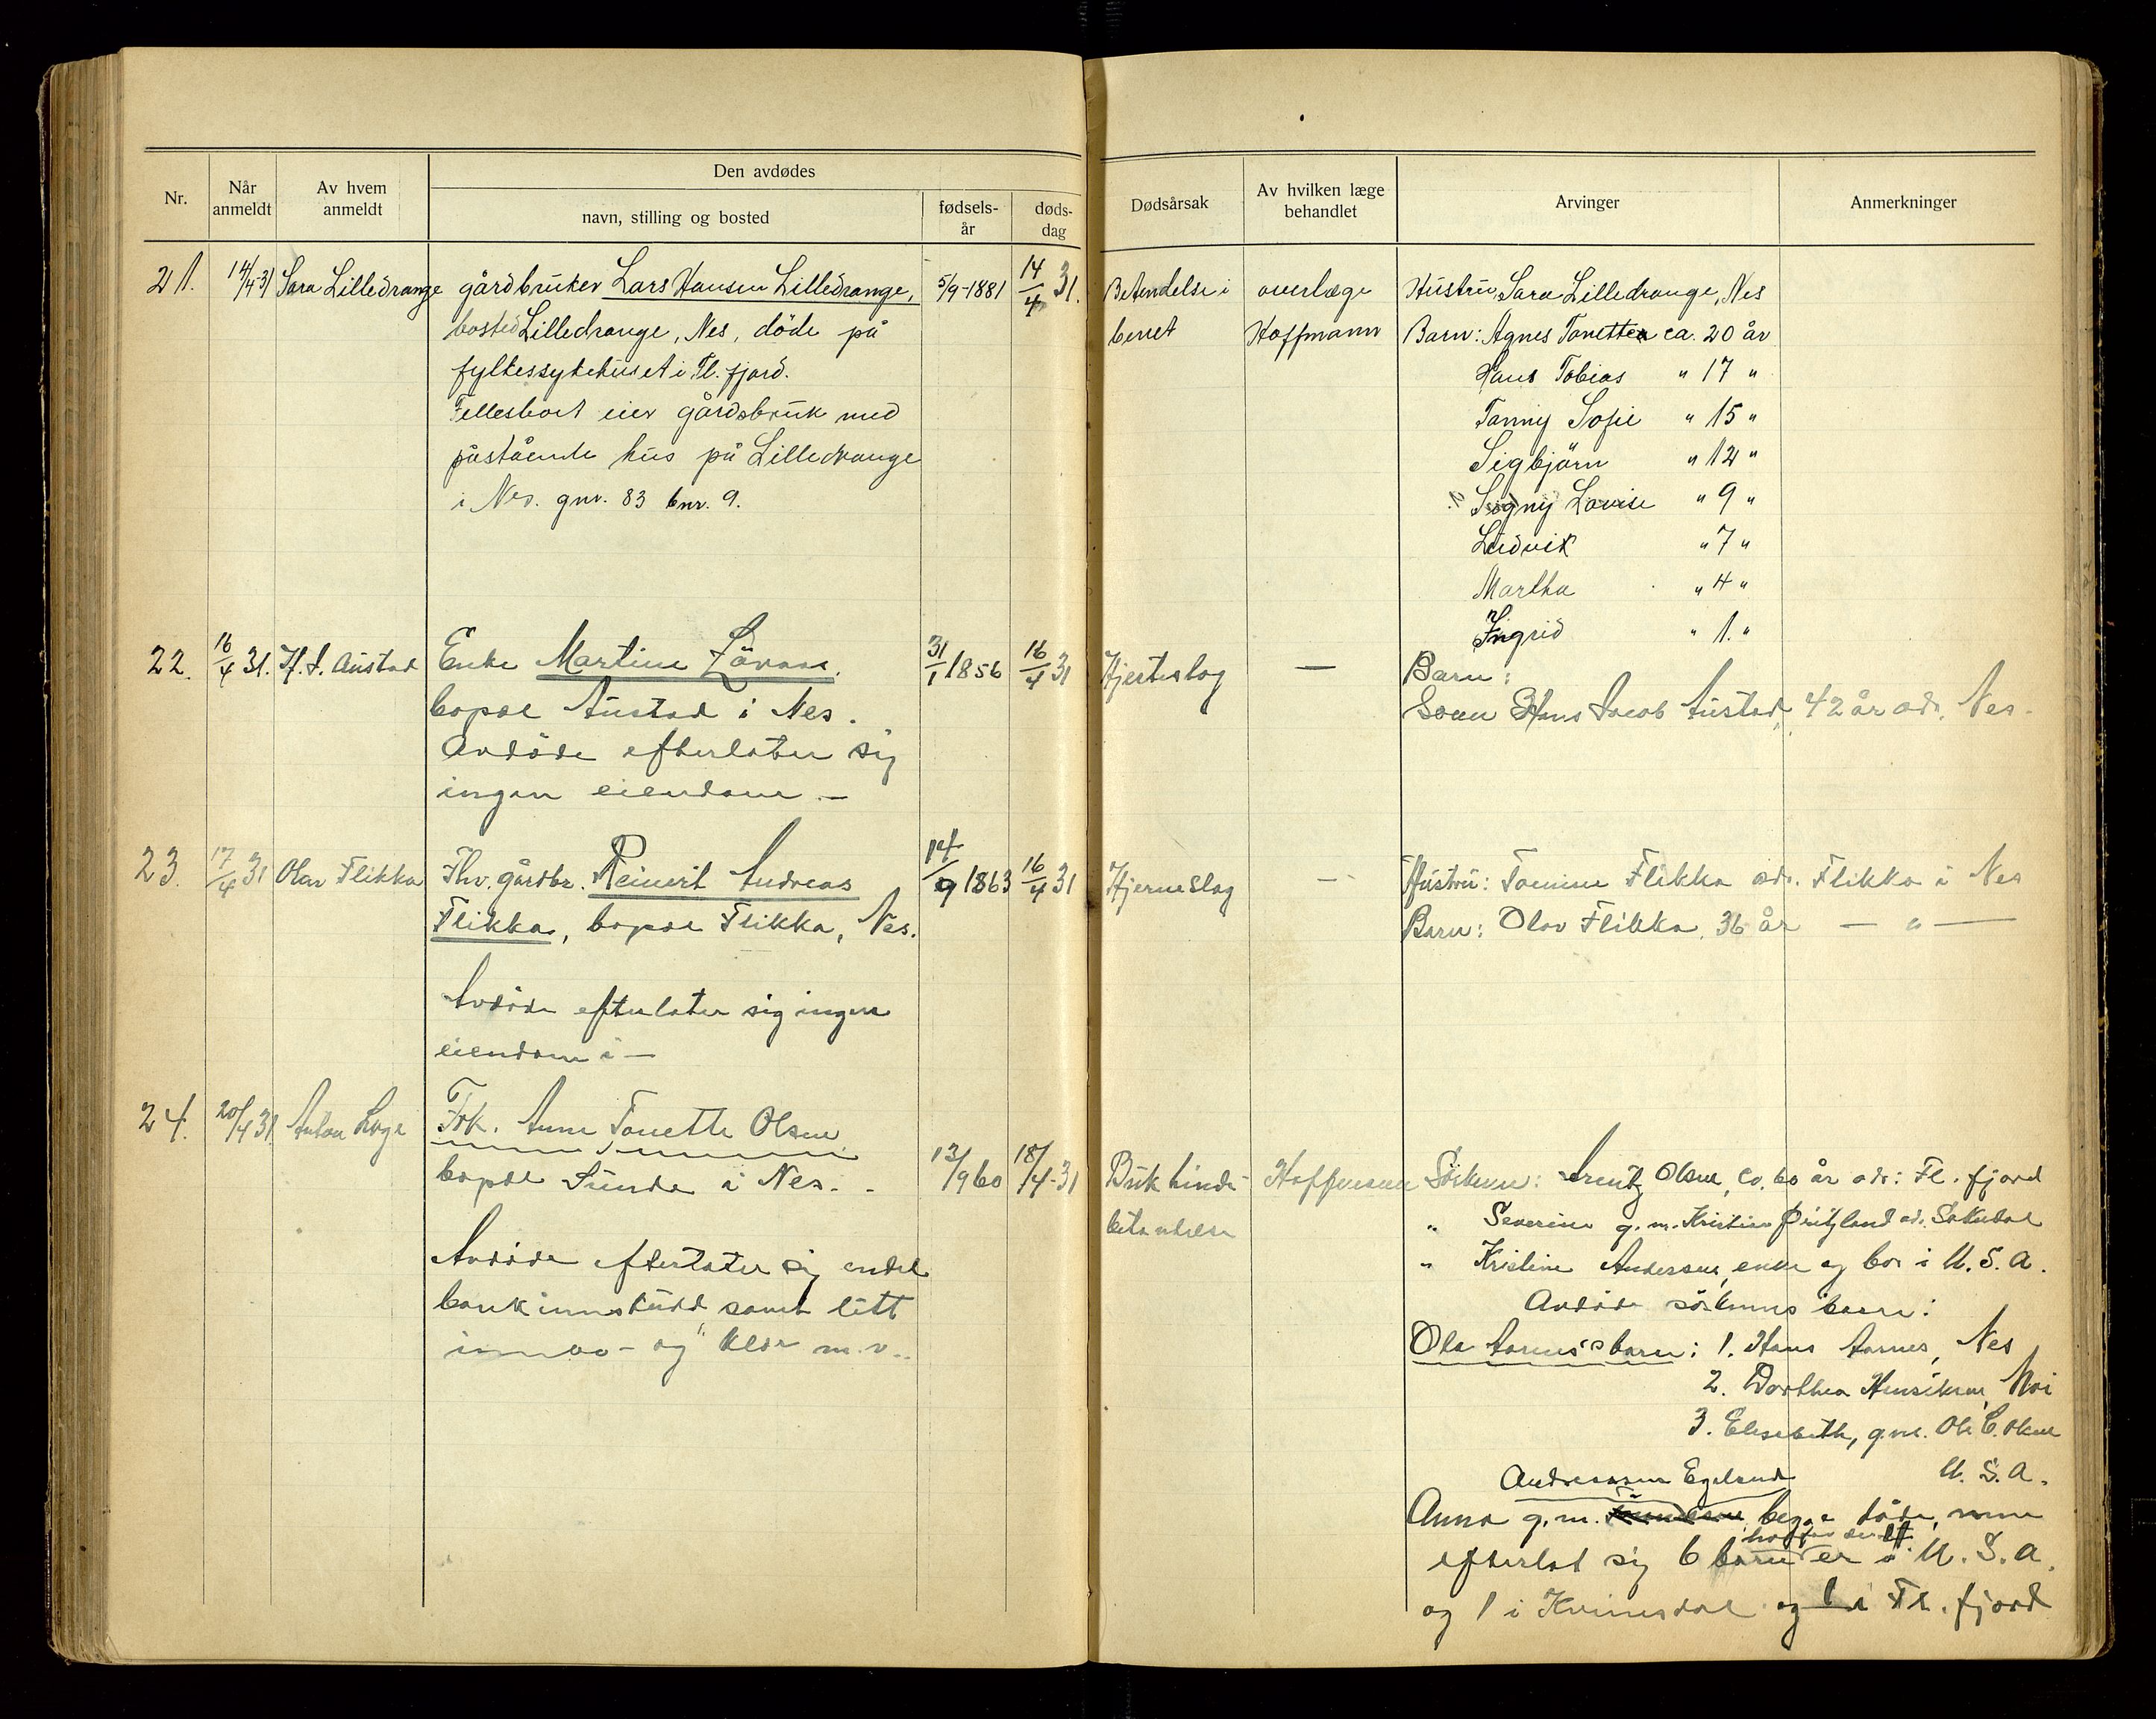 Nr.
Når anmeldt
Av hvem anmeldt
Den avdødes
navn, stilling og bosted
fødsels-år
døds-dag
Dødsårsak
Av hvilken læge behandlet
Arvinger
Anmerkninger
21. 14/4-31 Sara Lilledrange gårdbruker Lars Hansen Lilledrange, 5/9-1881 14/4 31.
bosted Lilledrange, Nes, döde på
fylkessykehuset i Fl.fjord.
Fellesboet eier gårdsbruk med
påstående hus på Lilledrange
i Nes. gnr. 83 bnr. 9.
Betendelse i overlæge Hustru, Sara Lilledrange, Nes
benet Hoffmann Barn: Agnes Tonette ca. 20 år
Hans Tobias " 17 "
Tanny Sofie " 15 "
Sigbjörn " 12 "
Signy Lovise " 9 "
Ludvik " 7 "
Martha " 4 "
Ingrid " 1. "
22. 16/4 31. H. J. Austad Enke Martine 31/1 1856 16/4 31
bopæl Austad i Nes.
Avdöde efterlater sig
ingen eiendom. —
Hjerteslag — Barn:
Sönn Hans Jacob Austad, 42 år adr. Nes.
23. 17/4 31 Olav Flikka Fhv. gårdbr. Reinert Andreas 14/9 1863 16/4 31
Flikka, bopæl Flikka, Nes.
Avdöde efterlater sig ingen
eiendom i —
Hjerneslag — Hustru: Tomine Flikka adr. Flikka i Nes
Barn: Olav Flikka, 36 år — " —
24. 20/4 31 Anton Loge Frk. Anne Tonette Olsen
bopæl Sunde i Nes. 13/9 60 18/4-31
Avdöde efterlater sig endel
bankinnskudd samt litt
innbo- og klær m.v.
Bukhinde- Hoffmann Søsken: Arentz Olsen, ca. 60 år adr: Fl.fjord
betendelse " Severine g.m. Kristian adr. Sokndal
" Kristine Andersen, enke og bor i U.S.A.
Avdöde söskens barn:
Ola Aarnes's barn: 1. Hans Aarnes, Nes
2. Dorthea Henriksen, Moi
3. Elisabeth, g.m. Ole C. Olsen
U.S.A.
Andreassen Egeland
Anna g.m. begge döde, men
efterlot sig 6 barn er i U.S.A.
og 1 i Kvinesdal og 1 i Fl.fjord